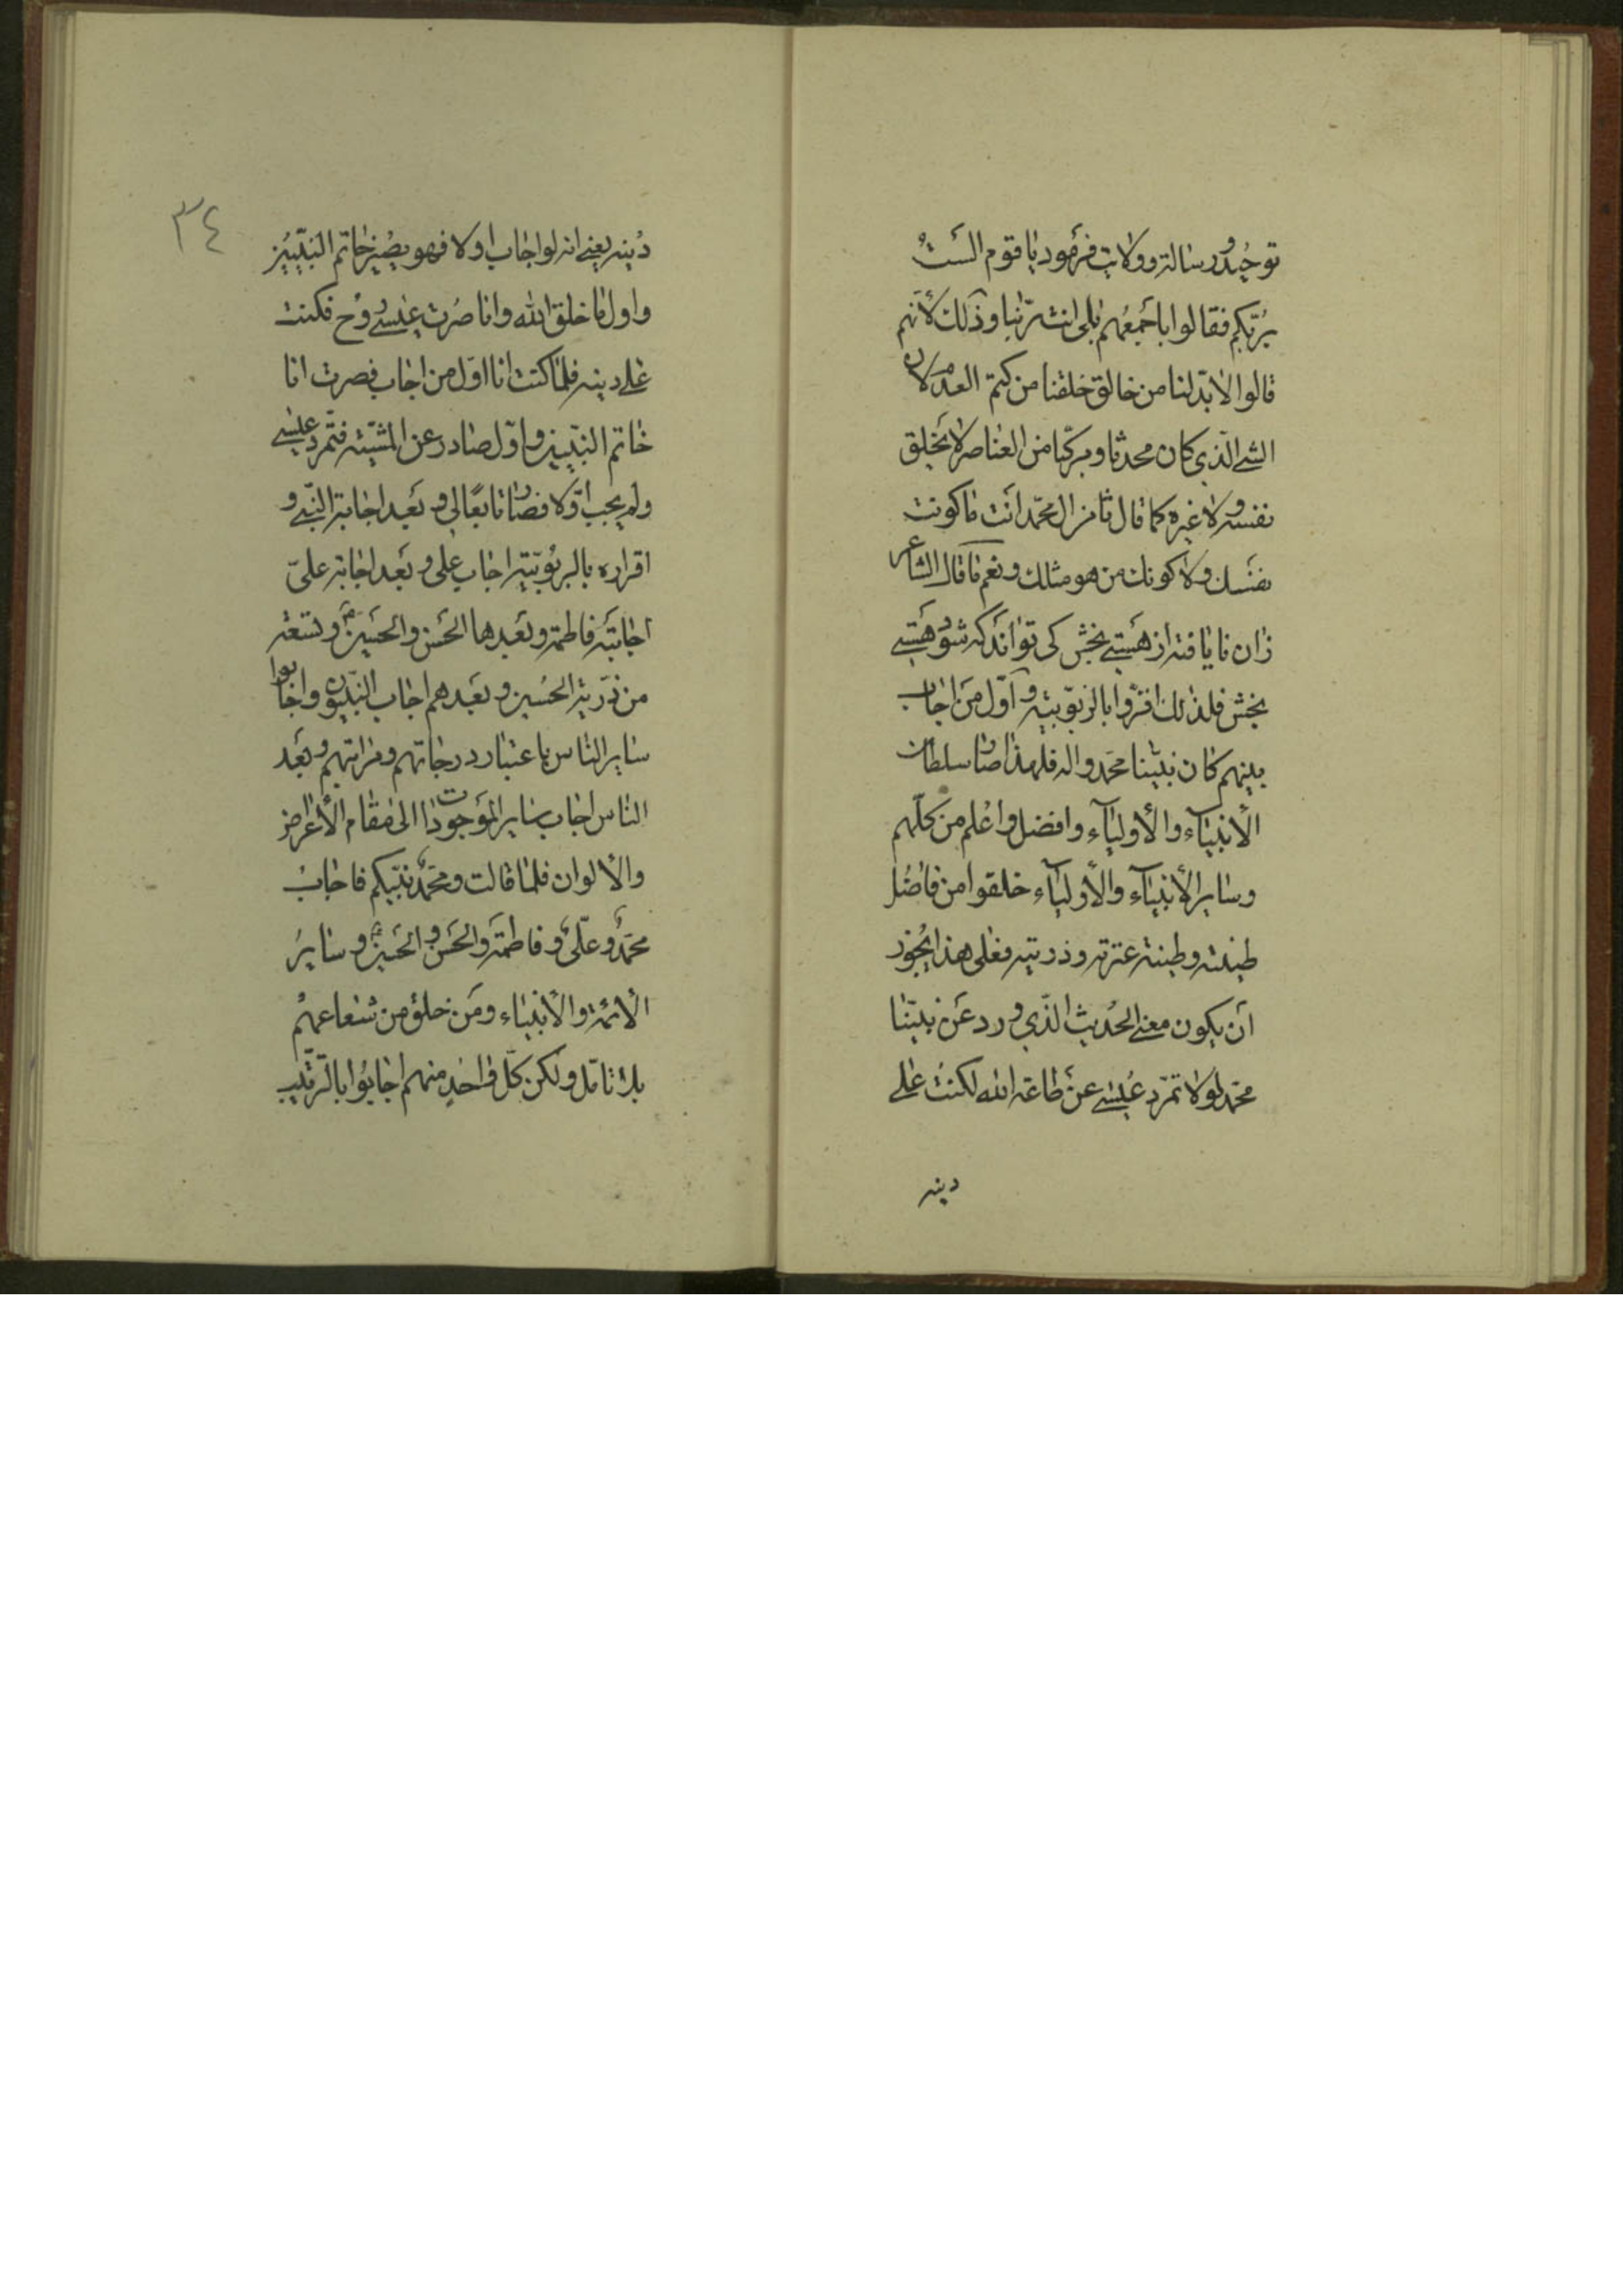 توحید و رسالة و ولایت فرمود یا قوم الست
بربکم فقالوا باجمعهم بلی انت ربنا و ذلک لانهم
قالوا لابد لنا من خالق خلقنا من کتم العدم لان
الشی الذی کان محدثا و مرکبا من العناصر لا یخلق
نفسه و لا غیره کما قال ثامن ال محمد انت ما کونت
نفسک و لا کونک من هو مثلک و نعم ما قال الشاعر
زان نایافته از هستی بخش کی تواند که شود هستی
بخش فلذلک اقروا بالربوبیته و اول من اجاب
بینهم کان نبینا محمد و اله فلهذا صار سلطان
الأنبیآء والأولیآء وافضل واعلم من کلهم
وسایر الأنبیآء والأولیآء خلقوا من فاضل
طینته وطینة عترته وذریته فعلی هذا یجوز
ان یکون معنی الحدیث الذی ورد عن نبینا
محمد لولا تمرد عیسی عن طاعة الله لکنت علی
دینه
٣٤
دینه یعنی انه لو اجاب اولا فهو یصیر خاتم النبیین
واول ما خلق الله وانا صرت عیسی روح فکنت
علی دینه فلما کنت انا اول من اجاب فصرت انا
خاتم النبیین و اول صادر عن المشیة فتمرد عیسی
ولم یجب اولا فصار تابعا لی و بعد اجابة النبی و
اقراره بالربوبیته اجاب علی و بعد اجابة علی
اجابته فاطمة و بعدها الحسن والحسین و تسعة
من ذریة الحسین و بعدهم اجاب النبیون واجابوا
سایر الناس باعتبار درجاتهم ومراتبهم وبعد
الناس اجاب سایر الموجودات الی مقام الأعراض
والألوان فلما قالت ومحمد نبیکم فاجاب
محمد وعلی وفاطمة والحسن والحسین وسایر
الأئمة والأنبیاء ومن خلق من شعاعهم
بلا تامل ولکن کل واحد منهم اجابوا بالترتیب